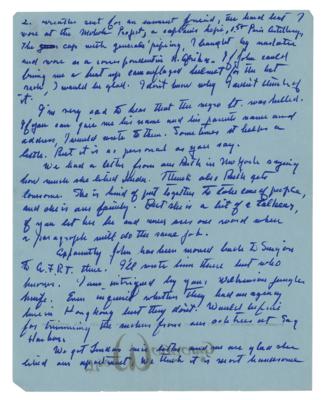 2. wreathes sent for an unmet friend, the hard hat I
wore at the Modoc Project, a captain's hat, 1st Prov Artillery,
the cap with generals' piping, I bought by mistake
and wore as a correspondent in Africa. If John could
bring me a beat up camouflaged helmet for the hat
rack I would be glad. I don't know why I didn't think of
it.
I'm very sad to hear that the negro Lt. was killed.
If you can give me his name and his parents name and
address, I would write to them. Sometimes it helps a
little. But it is as personal as you say.
We had a letter from Ruth in New York saying
how much she liked them. Think also Ruth gets
lonesome. She is kind of put together to take care of people,
and she is our family. But she is a bit of a talker,
if you let her be and never uses one word where
a paragraph will do the same job.
Apparently John has been moved back to Saigon
to A.F.R.T. there. I'll write him there but who
knows. I am intrigued by your Wilkinson jungle
knife. Even inquired whether they had an agency
here in Hong Kong but they don't. Would be fine
for trimming the suckers from our oak trees at Sag
Harbor.
We got letter and we are glad she
liked our apartment. We think it is most handsome